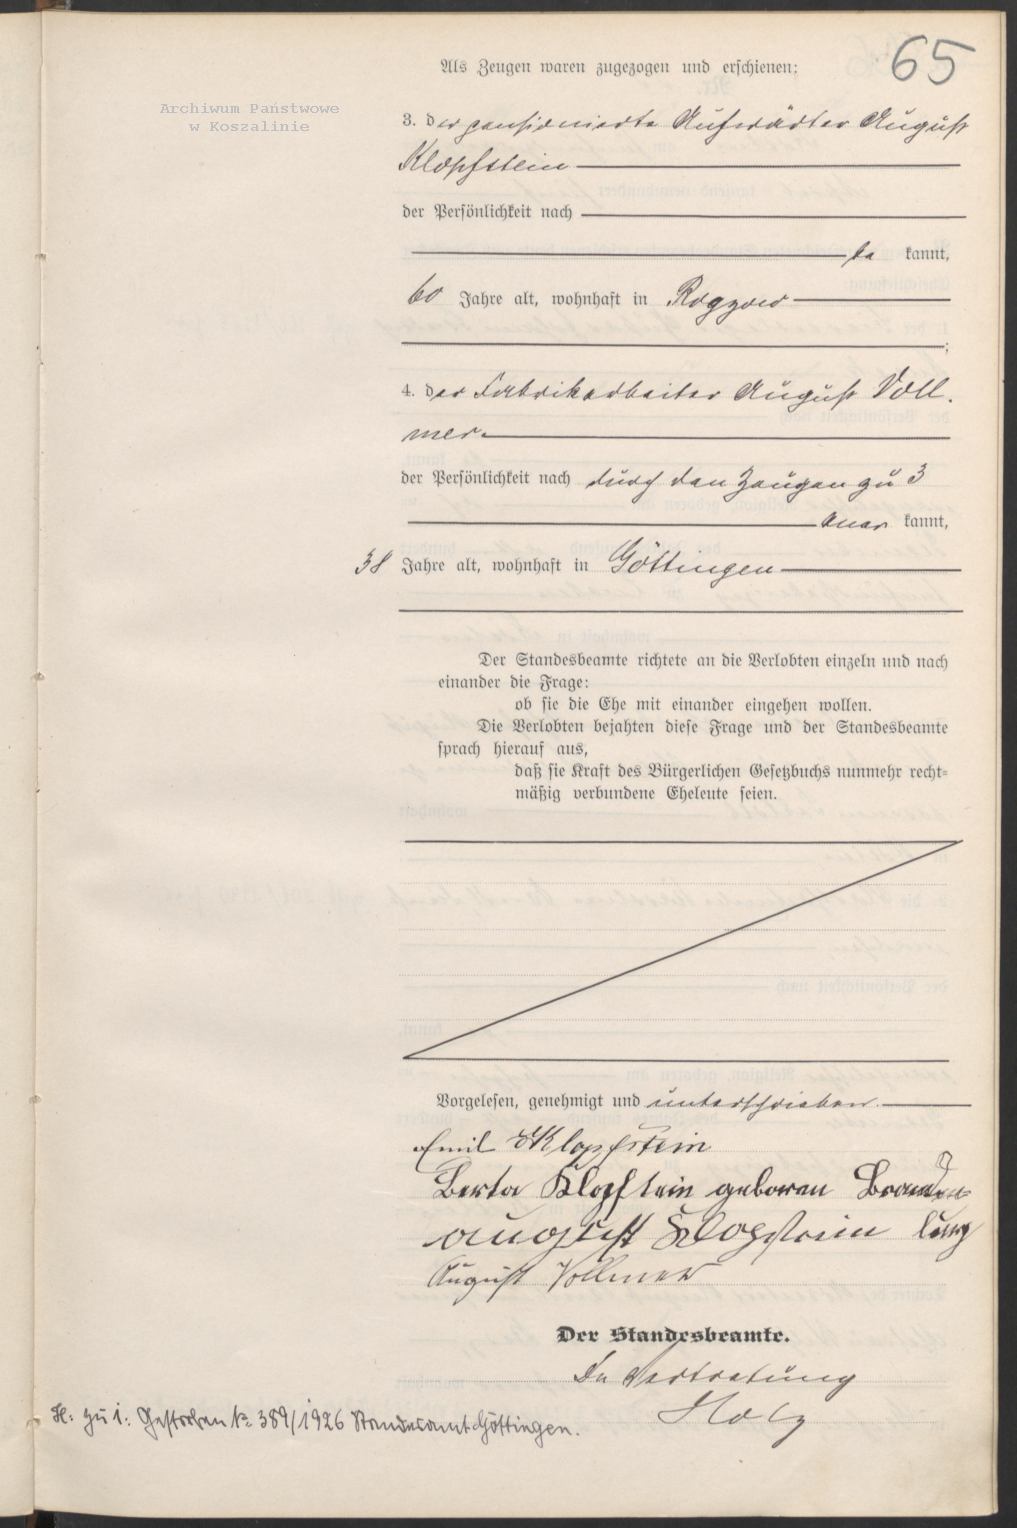 65
Als Zeugen waren zugezogen und erschienen:
Archiwum Państwowe
w Koszalinie
3. der pensionierte Aufwärter August
Klopfstein
der Persönlichkeit nach
be kannt,
60 Jahre alt, wohnhaft in Roggow
;
4. der Fabrikarbeiter August Voll-
mer
der Persönlichkeit nach durch den Zeugen zu 3
aner kannt,
38 Jahre alt, wohnhaft in Göttingen
Der Standesbeamte richtete an die Verlobten einzeln und nach
einander die Frage:
ob sie die Ehe mit einander eingehen wollen.
Die Verlobten bejahten diese Frage und der Standesbeamte
sprach hierauf aus,
daß sie Kraft des Bürgerlichen Gesetzbuchs nunmehr recht-
mäßig verbundene Eheleute seien.
Vorgelesen, genehmigt und unterschrieben.
Emil Klopfstein
Berta Klopfstein geboren
August Klopfstein
August Vollmer
Der Standesbeamte.
In Vertretung
Holz
H: zu 1: Gestorben Nr. 389/1926 Standesamt Göttingen.